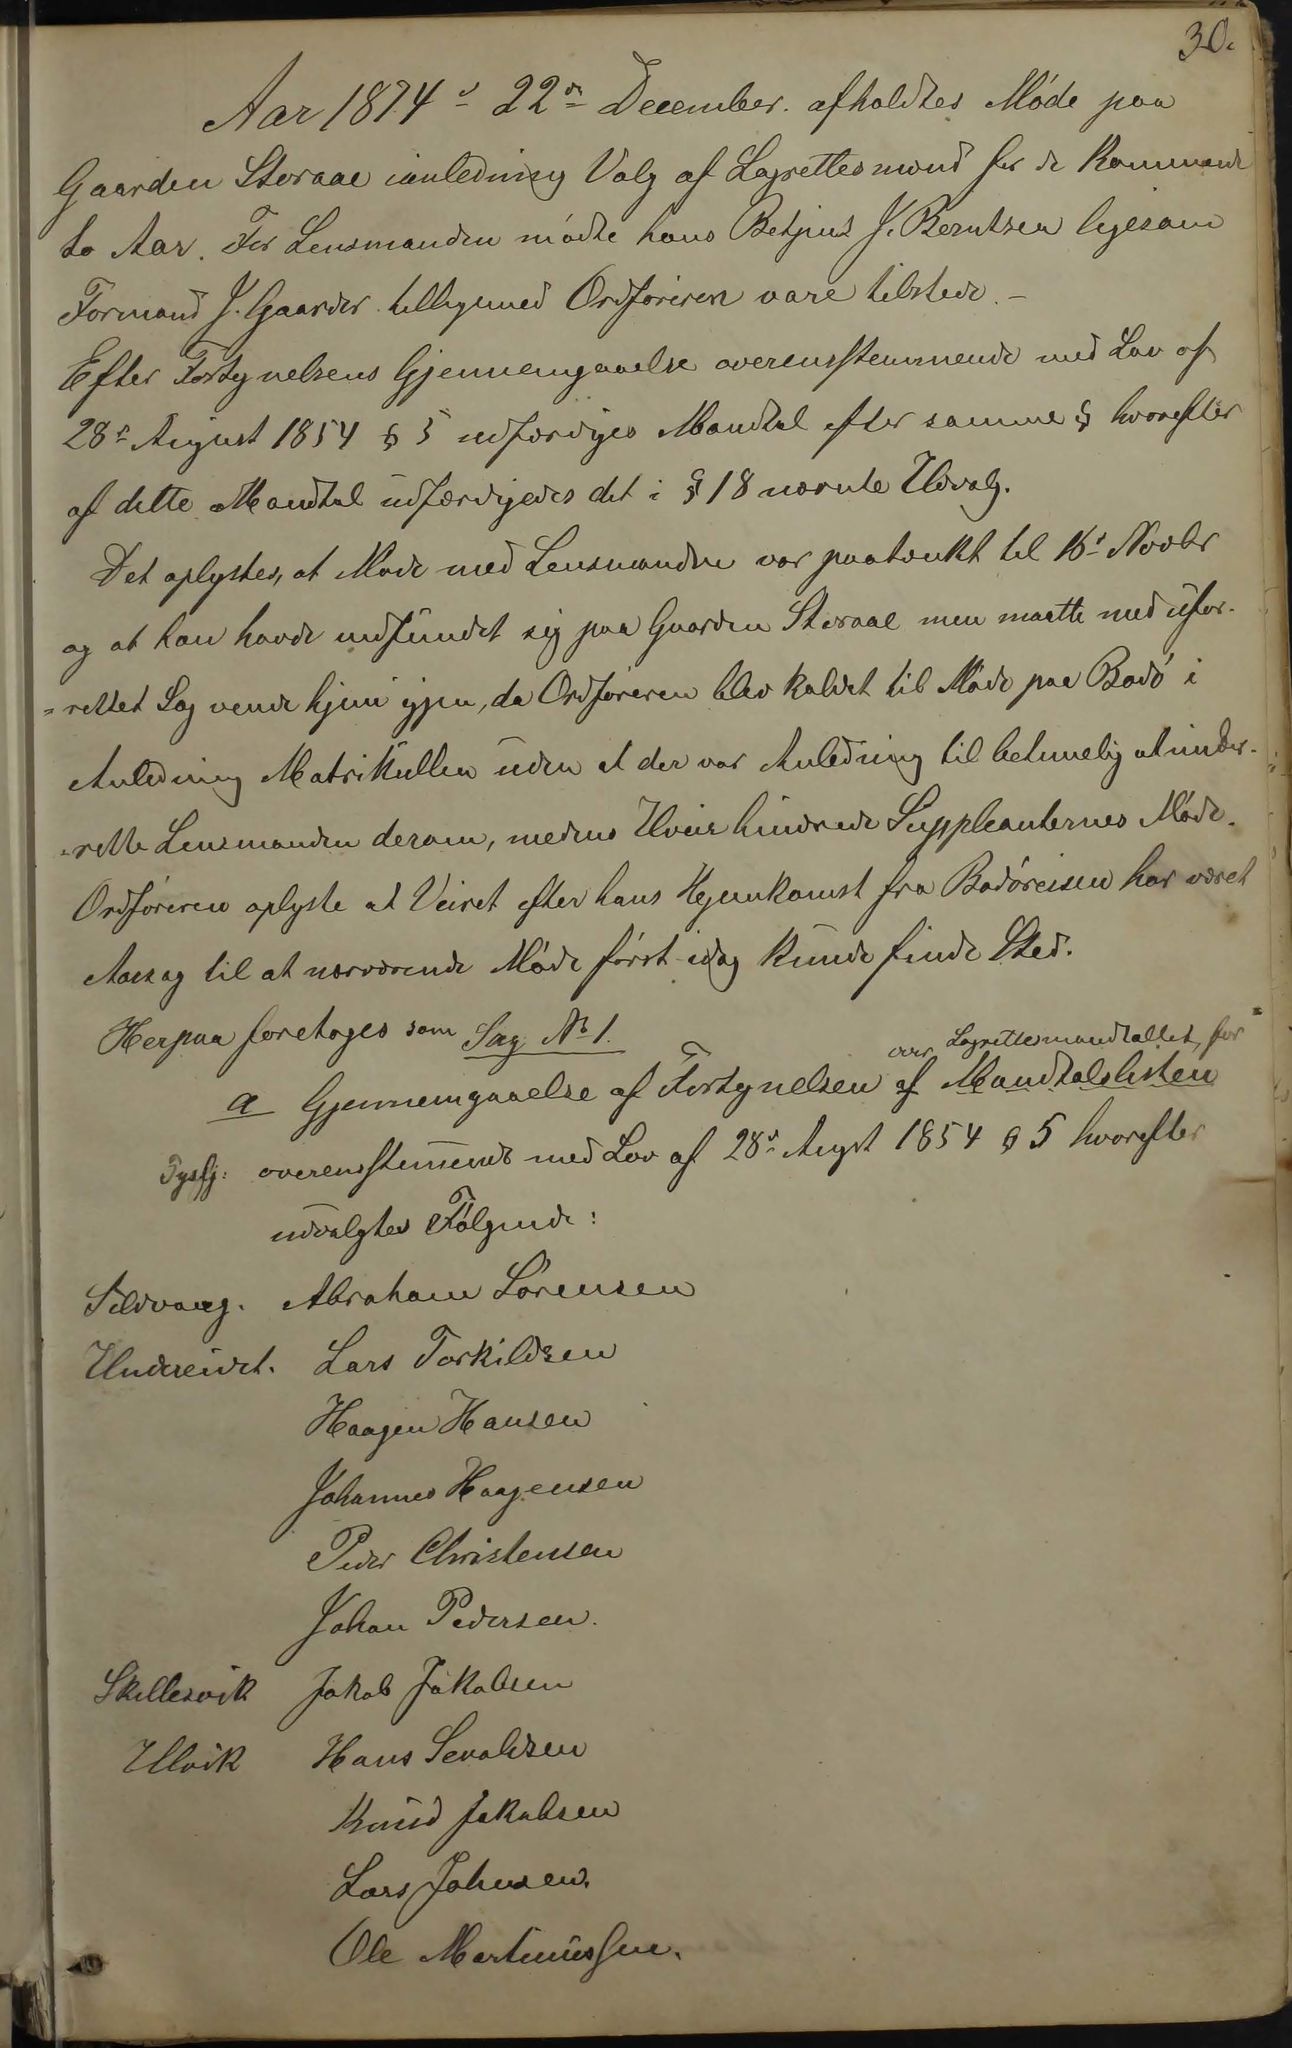 30.
Aar 1874 d 22de December. afholdtes Møde paa
Gaarden Storaae ianledning Valg af Lagrettesmænd for de kommende
to Aar. For Lensmanden mødte hans Betjent J. Berntsen ligesom
Formand J. Gaarder tilligemed Ordføreren vare tilstede. –
Efter Fortegnelsens Gjennemgaaelse overensstemmende med Lov af
28d August 1854 § 5 udfærdiges Mandtal efter samme § hvorefter
af dette Mandtal udfærdigedes det i § 18 nævnte Udvalg.
Det oplystes, at Møde med Lensmanden var paatænkt til 16d Novbr
og at han havde indfundet sig paa Gaarden Storaae men maatte med ufor-
=rettet Sag vende hjem igjen, da Ordføreren blev kaldet til Møde paa Bodø i
Anledning Matrikullen uden at der var Anledning til betimelig at under-
=rette Lensmanden derom, medens Uveir hindrede Suppleanternes Møde.
Ordføreren oplyste at Veiret efter hans Hjemkomst fra Bodøreisen har været
Aarsag til at nærværende Møde først idag kunde finde Sted.
Herpaa foretoges som Sag No 1.
over Lagrettemandtallet for
a Gjennemgaaelse af Fortegnelsen af Mandtalslisten
Tysfj: overensstemmende med Lov af 28d Augst 1854 § 5 hvorefter
udvalgtes Følgende:
Sildvaag. Abraham Sørensen
Undereidet. Lars Torkildsen
Haagen Hansen
Johannes Haagensen
Peder Christensen
Johan Pedersen.
Skillesvik Jakob Jakobsen
Ulvik Hans Sevaldsen
Knud Jakobsen
Lars Johnsen.
Ole Martinussen.